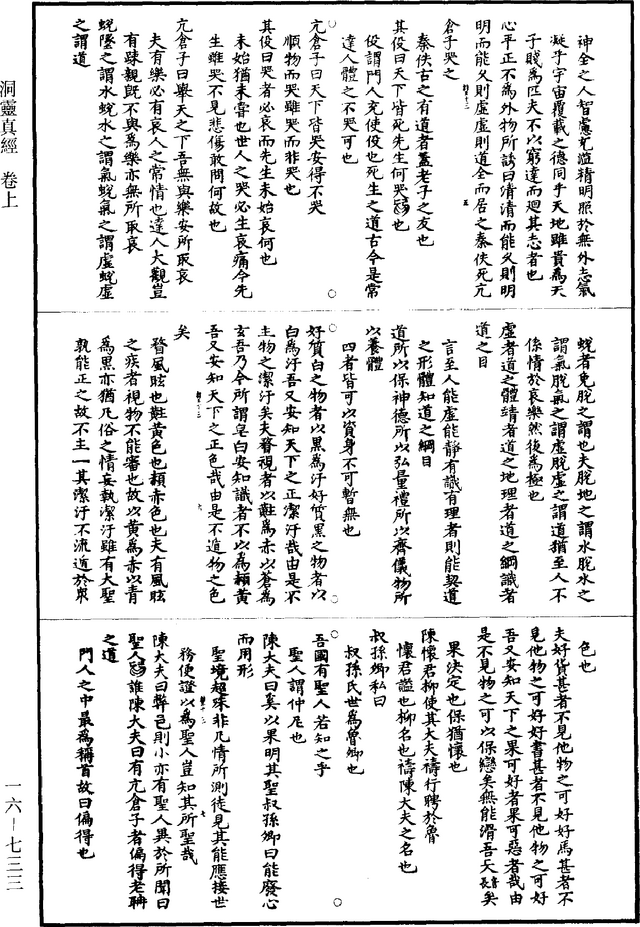 洞靈真經　卷上
神全之人智慮充溢精明照於無外志氣
凝乎宇宙覆載之德同乎天地雖貴為天
子賤為匹夫不以窮達而迴其志者也
心平正不為外物所誘曰清清而能久則明
明而能久則虛虛則道全而居之秦佚死亢
倉子哭之
秦佚古之有道者蓋老子之友也
其役曰天下皆死先生何哭也
役謂門人充使役也死生之道古今是常
達人體之不哭可也
亢倉子曰天下皆哭安得不哭
順物而哭雖哭而非哭也
其役曰哭者必哀而先生未始哀何也
未始猶未嘗也世人之哭必生哀痛今先
生雖哭不見悲傷敢問何故也
亢倉子曰舉天之下吾無與樂安所取哀
夫有樂必有哀人之常情也達人大觀豈
有疎親既不與為樂亦無所取哀
蛻墬之謂水蛻水之謂氣蛻氣之謂虛蛻虛
之謂道
蛻者免脫之謂也夫脫地之謂水脫水之
謂氣脫氣之謂虛脫虛之謂道猶至人不
係情於哀樂然後為極也
虛者道之體靖者道之地理者道之綱識者
道之目
言至人能虛能靜有識有理者則能契道
之形體知道之綱目
道所以保神德所以弘量禮所以齊儀物所
以養體
四者皆可以資身不可暫無也
好質白之物者以黑為汙好質黑之物者以
白為汙吾又安知天下之正潔汙哉由是不
主物之潔汙矣夫瞀視者以黈為赤以蒼為
玄吾乃今所謂皂白安知識者不以為頳黃
吾又安知天下之正色哉由是不遁物之色
矣
瞀風眩也黈黃色也頳赤色也夫有風眩
之疾者視物不能審也故以黃為赤以青
為黑亦猶凡俗之情妄執潔汙雖有大聖
孰能正之故不主一其潔汙不流遁於衆
色也
夫好貨甚者不見他物之可好好馬甚者不
見他物之可好好書甚者不見他物之可好
吾又安知天下之果可好者果可惡者哉由
是不見物之可以保戀矣無能滑吾天長矣
果決定也保猶懷也
陳懷君柳使其大夫禱行聘於魯
懷君謚也柳名也禱陳大夫之名也
叔孫卿私曰
叔孫氏世為魯卿也
吾國有聖人若知之乎
聖人謂仲尼也
陳大夫曰奚以果明其聖叔孫卿曰能廢心
而用形
聖境超殊非凡情所測徒見其能應接世
務便證以為聖人豈知其所聖哉
陳大夫曰弊邑則小亦有聖人異於所聞曰
聖人誰陳大夫曰有亢倉子者偏得老聃
之道
門人之中最為稱首故曰偏得也
一六－七三三